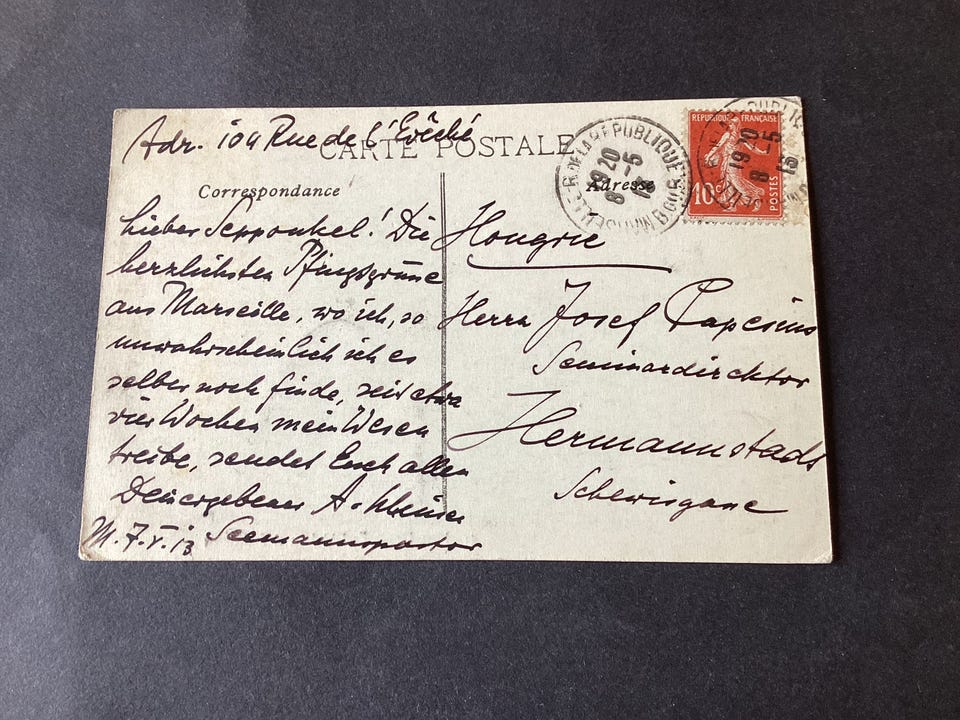 Adr. 104 Rue de l'Evêché
CARTE POSTALE
Correspondance
Adresse
REPUBLIQUE FRANÇAISE
10c
POSTES
DE LA REPUBLIQUE
19 20
8 - 5
13
Lieber Sepponkel! Die
herzlichsten Pfingsgrüsse
aus Marseille, wo ich, so
unwahrscheinlich ich es
selber noch finde, seit etwa
vier Wochen mein Wesen
treibe, sendet Euch allen
Dein ergebener A.
M. 7.V.13 Seemannspastor
Hongrie
Herrn Josef Capesius
Seminardirektor
Hermannstadt
Schewisgasse